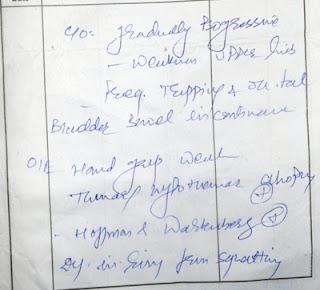 C/o: Gradually Progressive
- Weakness Upper limbs
Freq. Tripping &
Bladder Bowel incontinence
O/E Hand grip weak
Thenar hypothenar Atrophy +
- Hoffman & Wartenberg +
Dy. in Getting from squatting